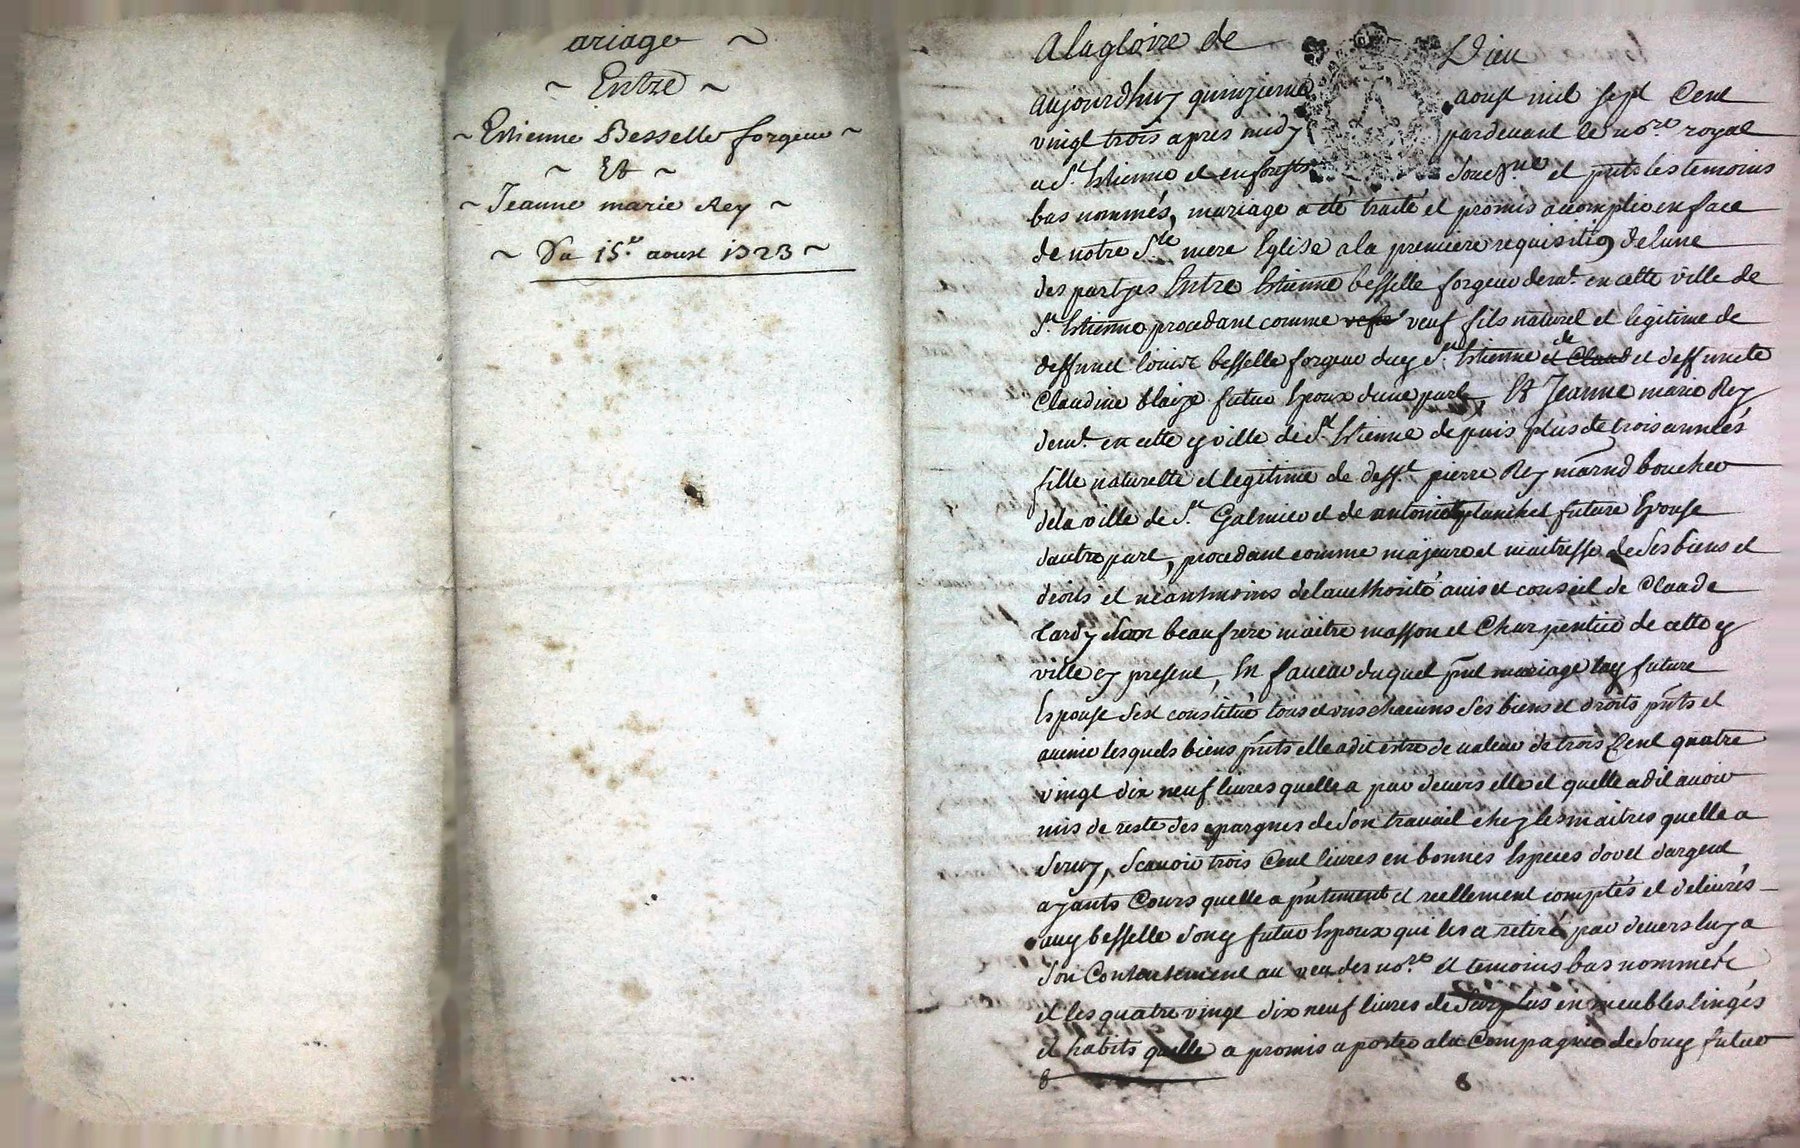 ariage ~
~ Entre ~
~ Estienne Besselle forgeur ~
~ Et ~
~ Jeanne marie Rey ~
~ Du 15e. aoust 1723 ~
A la gloire de Dieu
aujourdhuy quinzieme aoust mil sept Cent
vingt trois apres midy pardevant le nore. royal
a St. Estienne et en forests et pnts les temoins
bas nommés, mariage a été traité et promis accomplir en face
de notre Ste mere Eglise a la premiere requisition de lune
des partyes Entre Estienne besselle forgeur demt. en cette ville de
St. Estienne procedant comme veuf fils naturel et legitime de
deffunct besselle forgeur du St. Estienne et de deffuncte
Claudine blaize futur Epoux dune part, Et Jeanne marie Rey
demt. en cette ville de St. Estienne depuis plus de trois années
fille naturelle et legitime de defft. pierre Rey marnd boucher
de la ville de St. Galmier et de antoinette planchet future Epouse
dautre part, procedant comme majeure et maitresse de ses biens et
droits et néantmoins de lauthorité avis et conseil de Claude
tardy son beaufrere maitre masson et Charpentier de cette
ville cy present, En faveur duquel pnt mariage lad future
Espouse sest constitué tous et uns chacuns ses biens et droits pnts et
avenir lesquels biens pnts elle a dit estre de valeur de trois Cent quatre
vingt dix neuf livres quelle a par devers elle et quelle a dit avoir
mis de reste des epargnes de son travail chez les maitres quelle a
servy, scavoir trois Cent livres en bonnes Especes dor et dargent
ayants Cours quelle a pntement et reellement comptés et delivrés
aud besselle sond futur Epoux qui les a retiré par devers luy a
son Contentement au veu des nore. et temoins bas nommés
et les quatre vingt dix neuf livres de surplus en meubles linges
et habits quelle a promis aporter a la Compagnie de sond futur
6